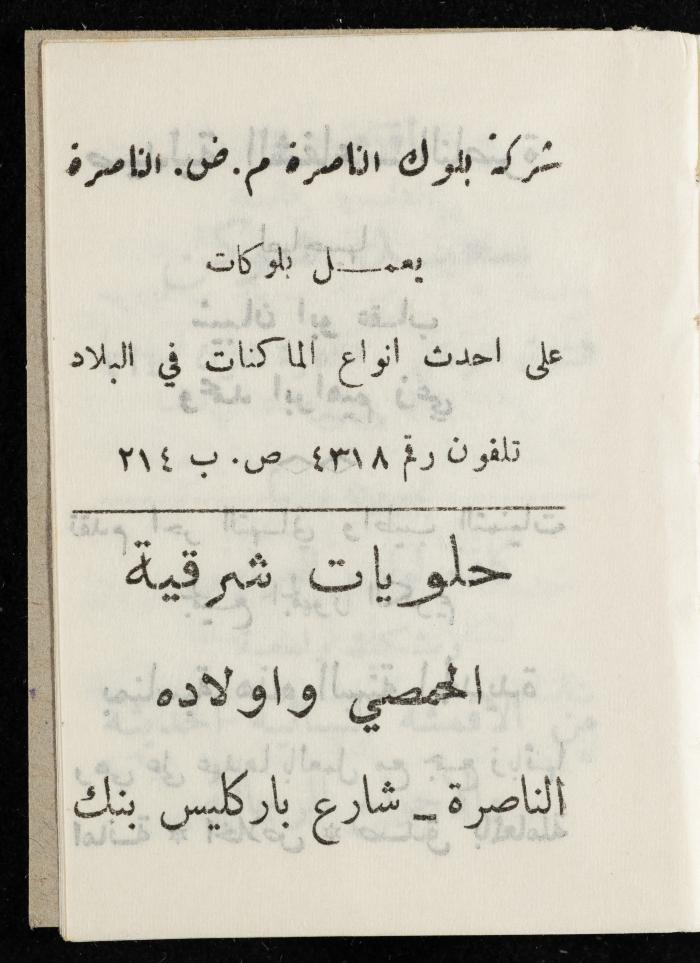 شركة بلوك الناصرة م.ض. الناصرة
يعمــل بلوكات
على احدث انواع الماكنات في البلاد
تلفون رقم ٤٣١٨ ص.ب ٢١٤
حلويات شرقية
الحمصي واولاده
الناصرة ـ شارع باركليس بنك